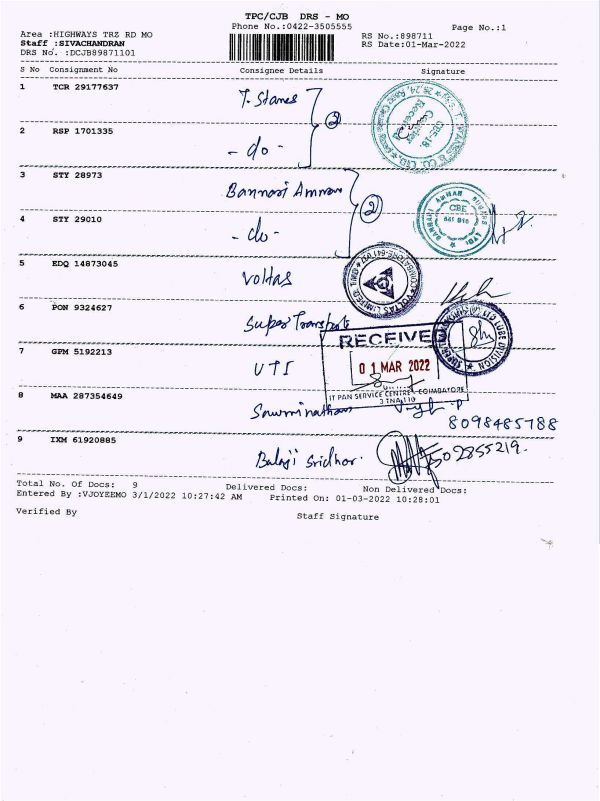 TPC/CJB DRS - MO
Phone No.:0422-3505555
Page No.:1
Area :HIGHWAYS TRZ RD MO
RS No.:898711
Staff :SIVACHANDRAN
RS Date:01-Mar-2022
DRS No. :DCJB89871101
S No Consignment No Consignee Details Signature
1 TCR 29177637 T. Stanes
2 RSP 1701335 - do -
2
3 STY 28973 Bannari Amman
4 STY 29010 - do -
2
BANNARI AMMAN SUGARS LTD
CBE
5 EDQ 14873045 Voltas
VOLTAS LIMITED
6 PON 9324627 Super Transports
LUBE DIVISION
RECEIVED
7 GPM 5192213 UTI
01 MAR 2022
IT PAN SERVICE CENTRE - COIMBATORE
8 MAA 287354649 Sowminathan
8098485788
9 IXM 61920885 Balaji Sridhar.
7502855219.
Total No. Of Docs: 9 Delivered Docs: Non Delivered Docs:
Entered By :VJOYEEMO 3/1/2022 10:27:42 AM Printed On: 01-03-2022 10:28:01
Verified By Staff Signature